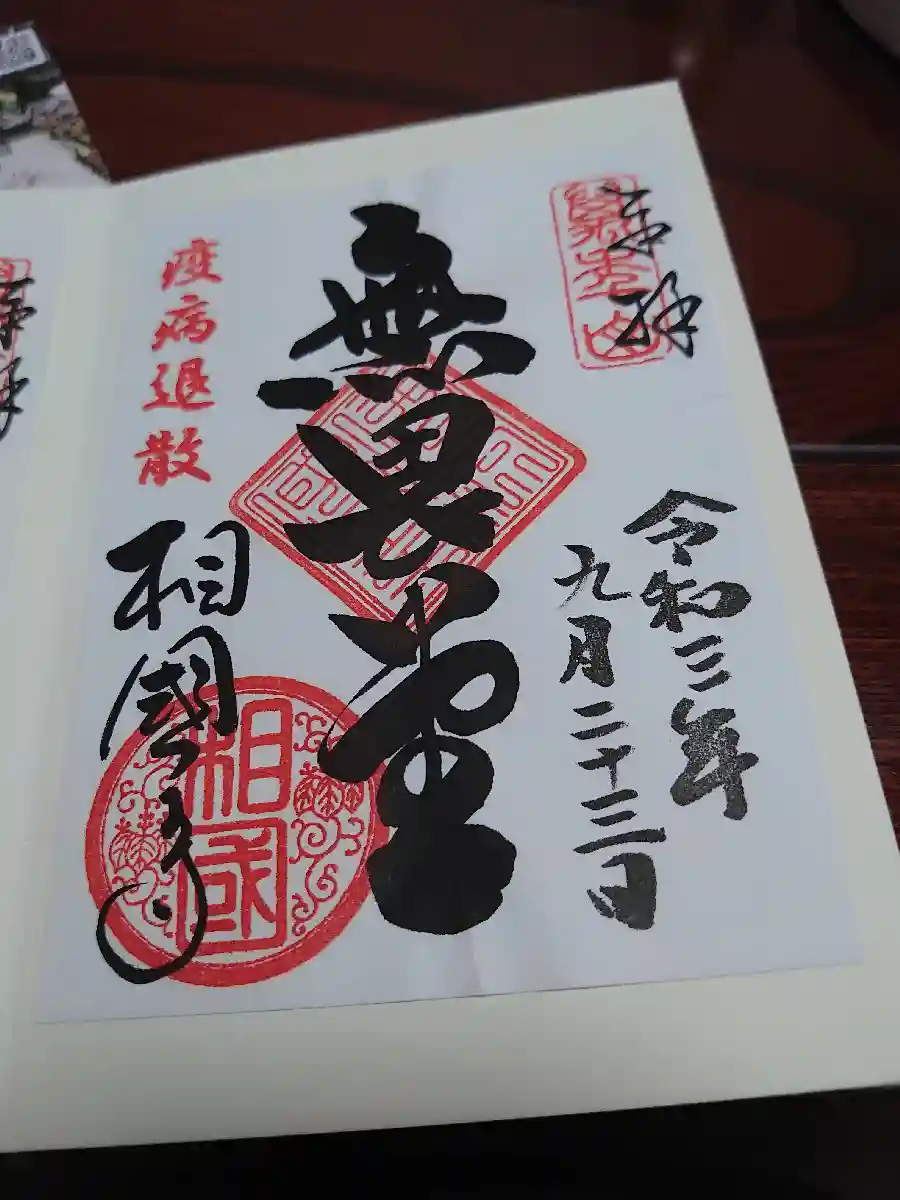 奉拝
萬年山
令和三年
九月二十三日
無畏堂
疫病退散
相國寺
相國